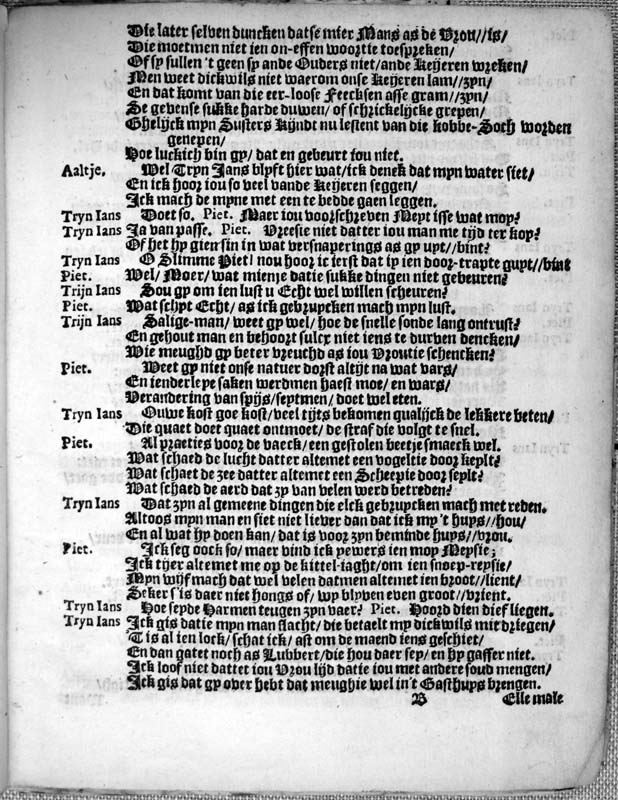 Die later selven duncken datse mier Mans as de Vrou//is/
Die moetmen niet ien on-effen woortie toespreken/
Of sy sullen 't geen sy ande Ouders niet/ande Keyeren wreken/
Men weet dickwils niet waerom onse Keyeren lam//zyn/
En dat komt van die eer-loose Feecksen asse gram//zyn/
Se gevense sukke harde duwen/ of schrickelijcke grepen/
Ghelijck myn Susters Kijndt nu lestent van die kobbe-Soch worden
genepen/
Hoe luckich bin gy/ dat en gebeurt iou niet.
Aaltje. Wel Tryn Jans blyft hier wat/ick denck dat myn water siet/
En ick hoor iou so veel vande Keyeren seggen/
Ick mach de myne met een te bedde gaen leggen.
Tryn Ians Doet so. Piet. Maer iou voorschreven Meyt isse wat moy?
Tryn Ians Ja van passe. Piet. Vreesie niet datter iou man me tijd ter koy?
Of het hy giensin in wat versnaperings as gy uyt//bint?
Tryn Ians O Slimme Piet! nou hoor ic ierst dat iy ien door-trapte guyt//bint
Piet. Wel/ Moer/ wat mienje datie sukke dingen niet gebeuren?
Trijn Ians Sou gy om ien lust u Echt wel willen scheuren?
Piet. Wat schyt Echt/ as ick gebruycken mach myn lust.
Trijn Ians Salige-man/ weet gy wel/ hoe de snelle sonde lang ontrust?
En gehout man en behoort sulcx niet iens te durven dencken/
Wie meughd gy beter vreuchd as iou Vroutie schencken?
Piet. Weet gy niet onse natuer dorst altijt na wat vars/
En ienderleye saken werdmen haest moe/ en wars/
Verandering van spijs/seytmen/ doet wel eten.
Tryn Ians Ouwe kost goe kost/veel tijts bekomen qualijck de lekkere beten/
Die quaet doet quaet ontmoet/ de straf die volgt te snel.
Piet. Al praeties voor de vaeck/ een gestolen beetje smaeck wel.
Wat schaed de lucht datter altemet een vogeltie door keylt?
Wat schaet de zee datter altemet een Scheepie door seylt?
Wat schaed de aerd dat zy van velen werd betreden?
Tryn Ians Dat zyn al gemeene dingen die elck gebruycken mach met reden.
Altoos myn man en siet niet liever dan dat ick my 't huys//hou/
En al wat hy doen kan/ dat is voor zyn beminde huys//vrou.
Piet. Ick seg oock so/ maer vind ick yewers ien moy Meysie;
Ick tijer altemet me op de kittel-iaght/om ien snoep-reysie/
Myn wijf mach dat wel velen datmen altemet ien broot//lient/
Seker s'is daer niet hongs of/ wy blyven even groot//vrient.
Tryn Ians Hoe seyde Harmen teugen zyn vaer? Piet. Hoord dien dief liegen.
Tryn Ians Ick gis datie myn man slacht/ die betaelt my dickwils mit driegen/
T is al ien lock/ schat ick/ ast om de maend iens geschiet/
En dan gatet noch as Lubbert/die hou daer sey/ en hy gaffer niet.
Ick loof niet dattet iou Vrou lijd datie iou met andere soud mengen/
Ick gis dat gy over hebt dat meughie wel in't Gasthuys brengen.
B Elle male